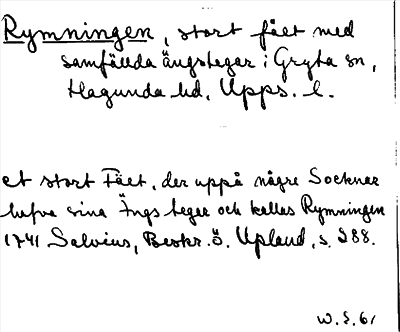 Rymningen, stort fäet med
samfällda ängstegar i Gryta sn,
Hagunda hd, Upps. l.
et stort Fäet, der uppå någre Socknar
hafva sina Ängs tegar och kallas Rymningen
1741 Salvius, Beskr. ö. Upland, s. 288.
W.S. 61